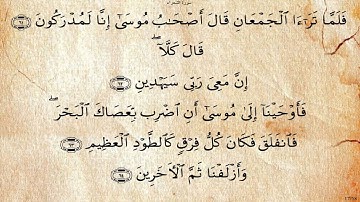 سورة الشعراء
فَلَمَّا تَرَٰٓءَا ٱلْجَمْعَانِ قَالَ أَصْحَٰبُ مُوسَىٰٓ إِنَّا لَمُدْرَكُونَ ﴿٦١﴾
قَالَ كَلَّآ ۖ
إِنَّ مَعِىَ رَبِّى سَيَهْدِينِ ﴿٦٢﴾
فَأَوْحَيْنَآ إِلَىٰ مُوسَىٰٓ أَنِ ٱضْرِب بِّعَصَاكَ ٱلْبَحْرَ ۖ
فَٱنفَلَقَ فَكَانَ كُلُّ فِرْقٍ كَٱلطَّوْدِ ٱلْعَظِيمِ ﴿٦٣﴾
وَأَزْلَفْنَا ثَمَّ ٱلْءَاخَرِينَ ﴿٦٤﴾